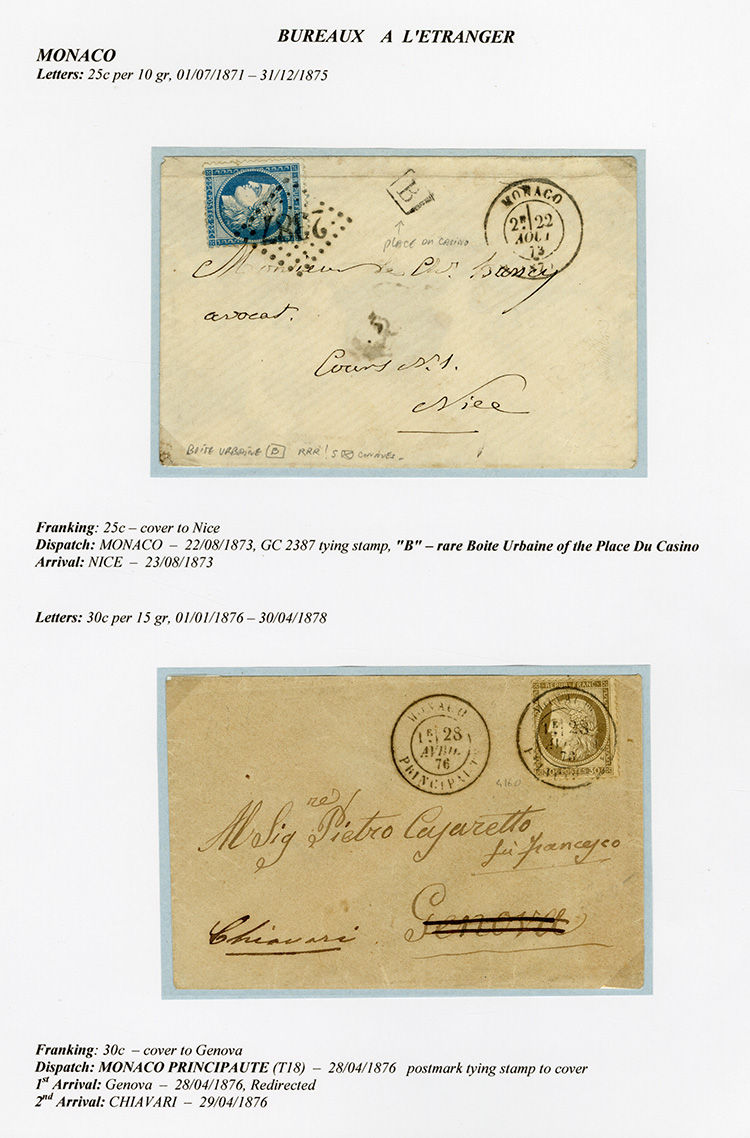 BUREAUX A L'ETRANGER
MONACO
Letters: 25c per 10 gr, 01/07/1871 – 31/12/1875
2387
B
MONACO
2E 22
AOUT
73
PLACE DU CASINO
Monsieur de
avocat.
Cours
Nice
BOITE URBAINE B RRR! 5
Franking: 25c – cover to Nice
Dispatch: MONACO – 22/08/1873, GC 2387 tying stamp, "B" – rare Boite Urbaine of the Place Du Casino
Arrival: NICE – 23/08/1873
Letters: 30c per 15 gr, 01/01/1876 – 30/04/1878
MONACO
1E 28
AVRIL
76
PRINCIPAUTE
REPUB FRANC
MONACO
1E 28
76
30 POSTES 30
4160
M Sig re Pietro Cajaretto
fu francesco
Genova
Chiavari
Franking: 30c – cover to Genova
Dispatch: MONACO PRINCIPAUTE (T18) – 28/04/1876 postmark tying stamp to cover
1st Arrival: Genova – 28/04/1876, Redirected
2nd Arrival: CHIAVARI – 29/04/1876